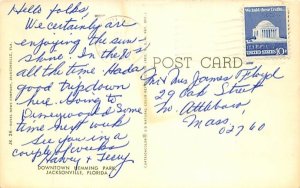 Hello folks,
We certainly are
enjoying the sun-
shine. In the 70s
all the time. Had a
good trip down
here. Going to
Disneyworld Some
time next week
See you in a
couple weeks
Harvey & Terry
DOWNTOWN HEMMING PARK
JACKSONVILLE, FLORIDA
POST CARD
We hold these Truths...
UNITED STATES 10c
Mr & Mrs James Floyd
29 Oak Street
No. Attleboro,
Mass.
02760